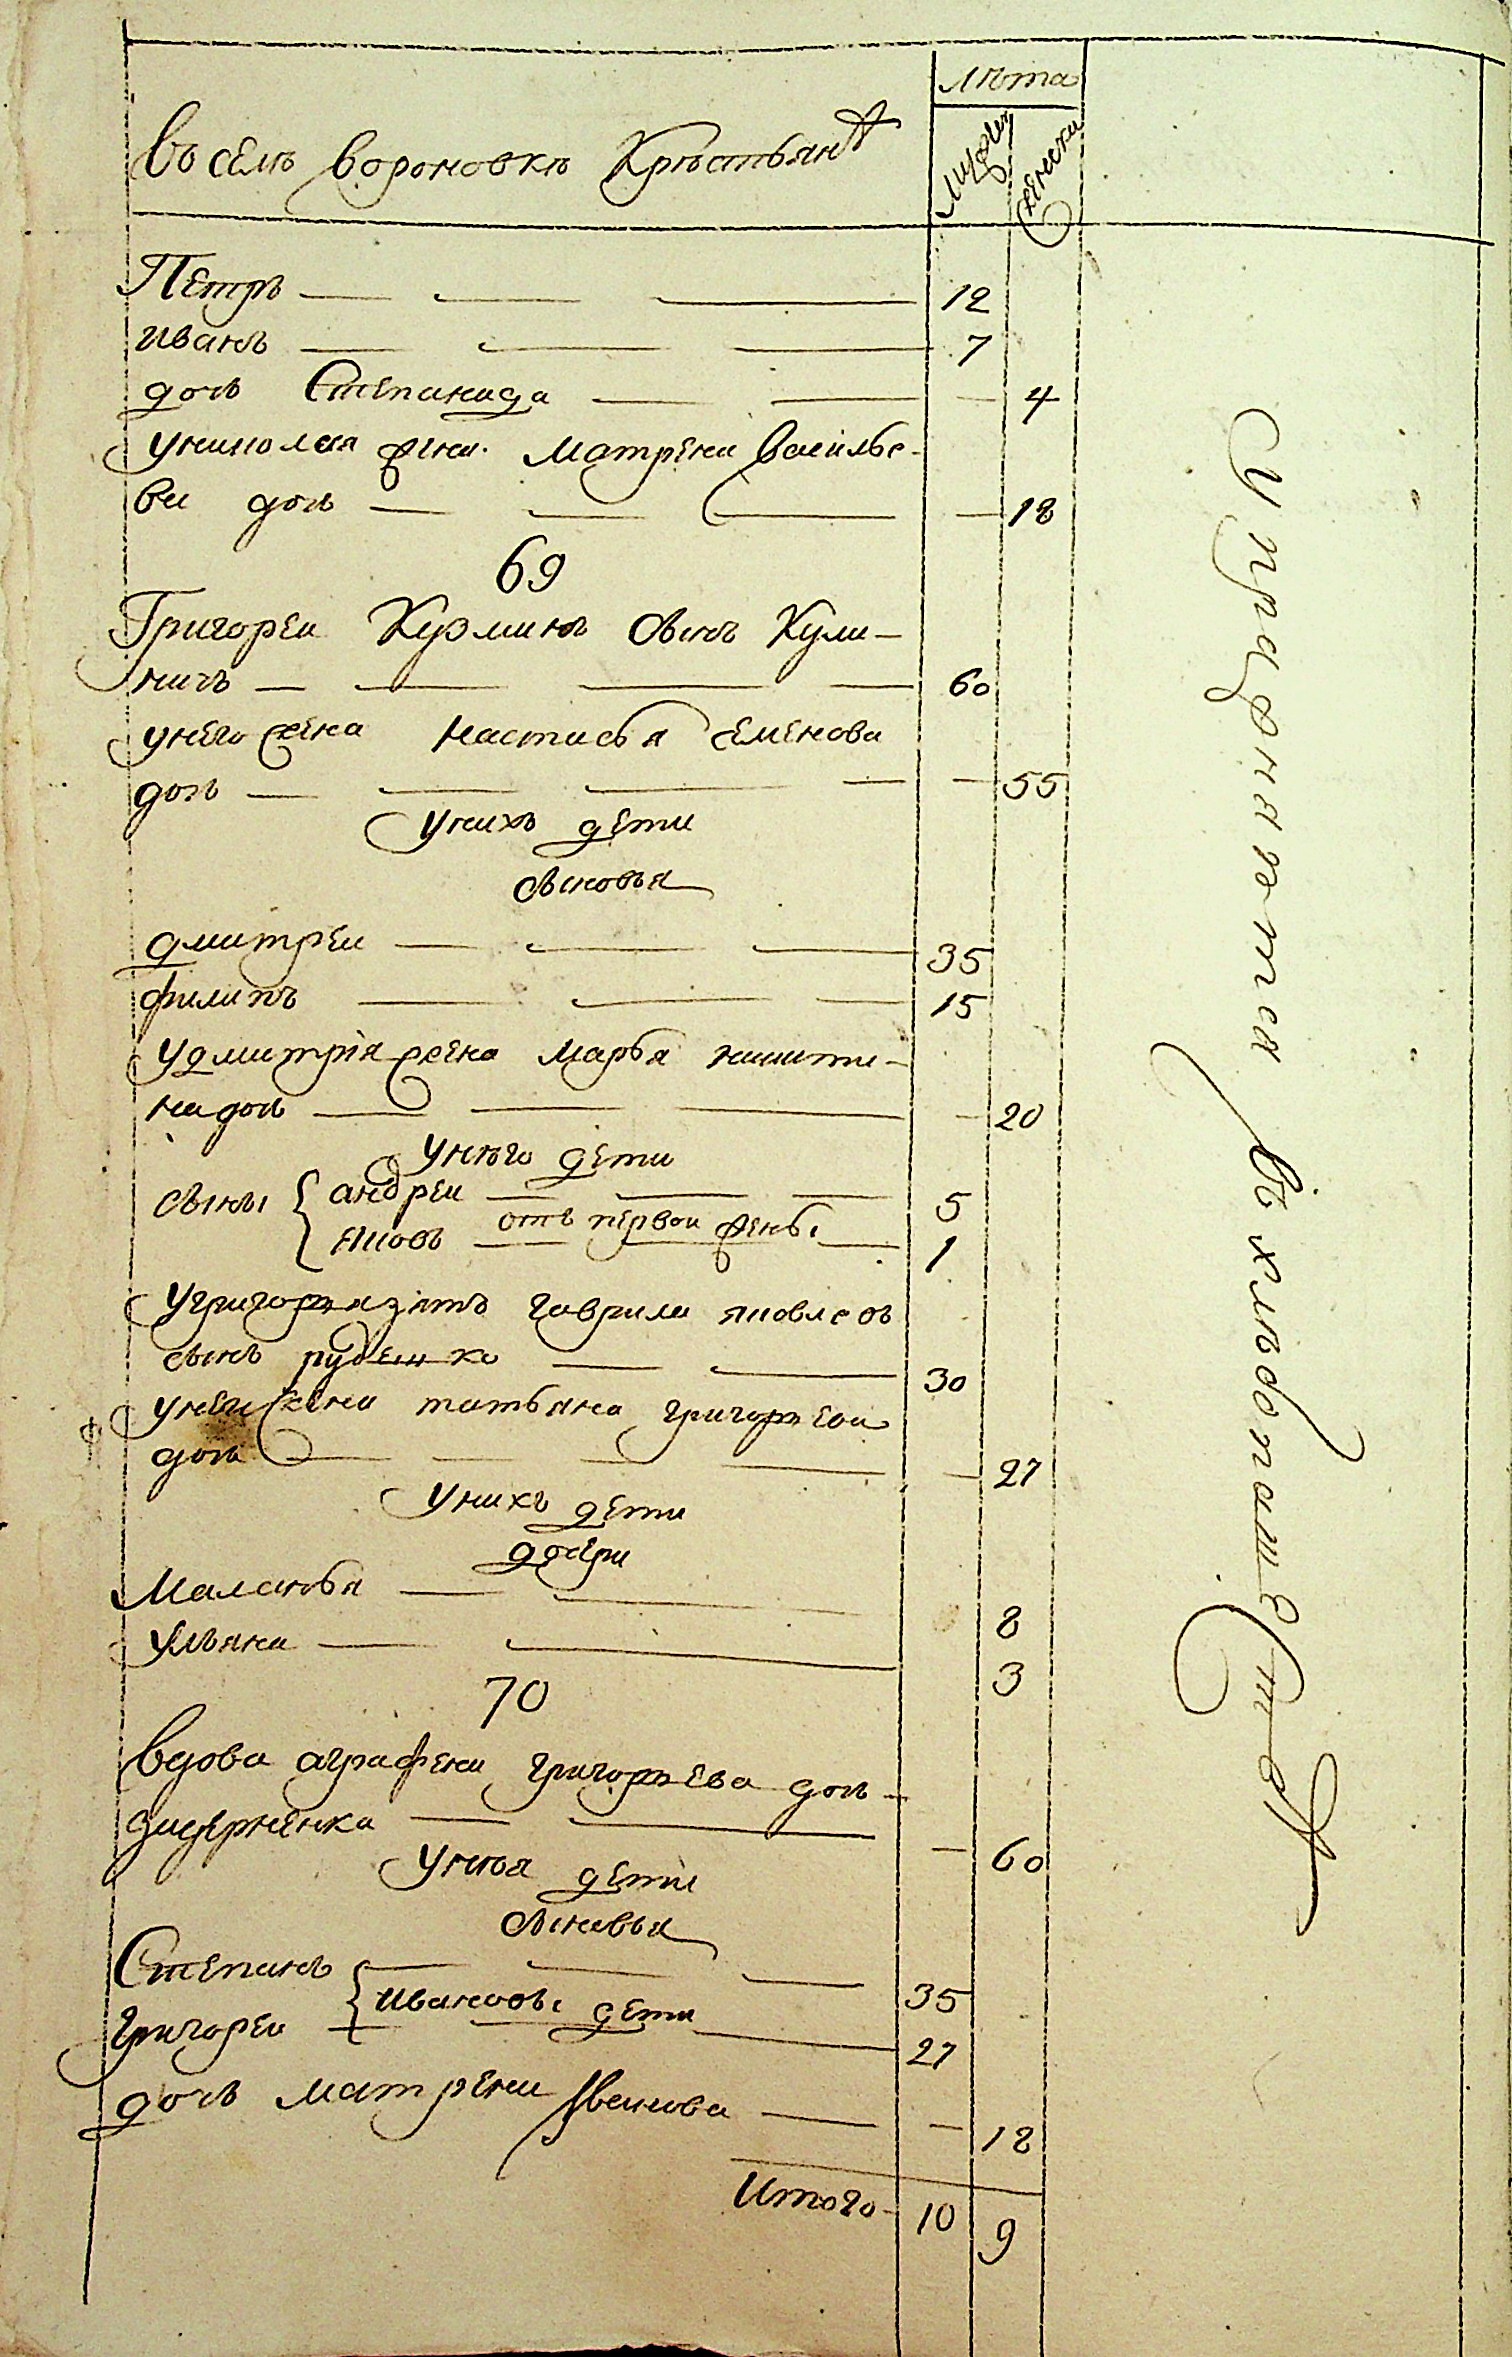 Лѣта
въ селѣ вороновкѣ Крѣстьянъ
мужеи
женски
Петръ — — — 12
иванъ — — — 7
дочь Степанида — — — 4
у николая жена матрена василье-
ва дочь — — — — 18
69
Григореи Кузминъ сынъ Кули-
ничъ — — — — 60
у него жена настасья семенова
дочь — — — — — 55
у нихъ дети
сыновья
дмитреи — — — 35
филипъ — — — 15
у дмитрія жена марья никити-
на дочь — — — — 20
у него дети
сыны { андреи — — — 5
яковъ отъ первои жены 1
у григорья зять гаврила яковлевъ
сынъ рудешко — — 30
у него жена татьяна григорьева
дочь — — — — — 27
у нихъ дети
дочери
Маланья — — 8
ульяна — — 3
70
вдова аграфена григорьева дочь —
— — — 60
у нея дети
сыновья
Степанъ — — — 35
григореи { ивановы дети 27
дочь матрена Иванова — — 18
Итого — 10 9
Упражняется въ хлебопашестве